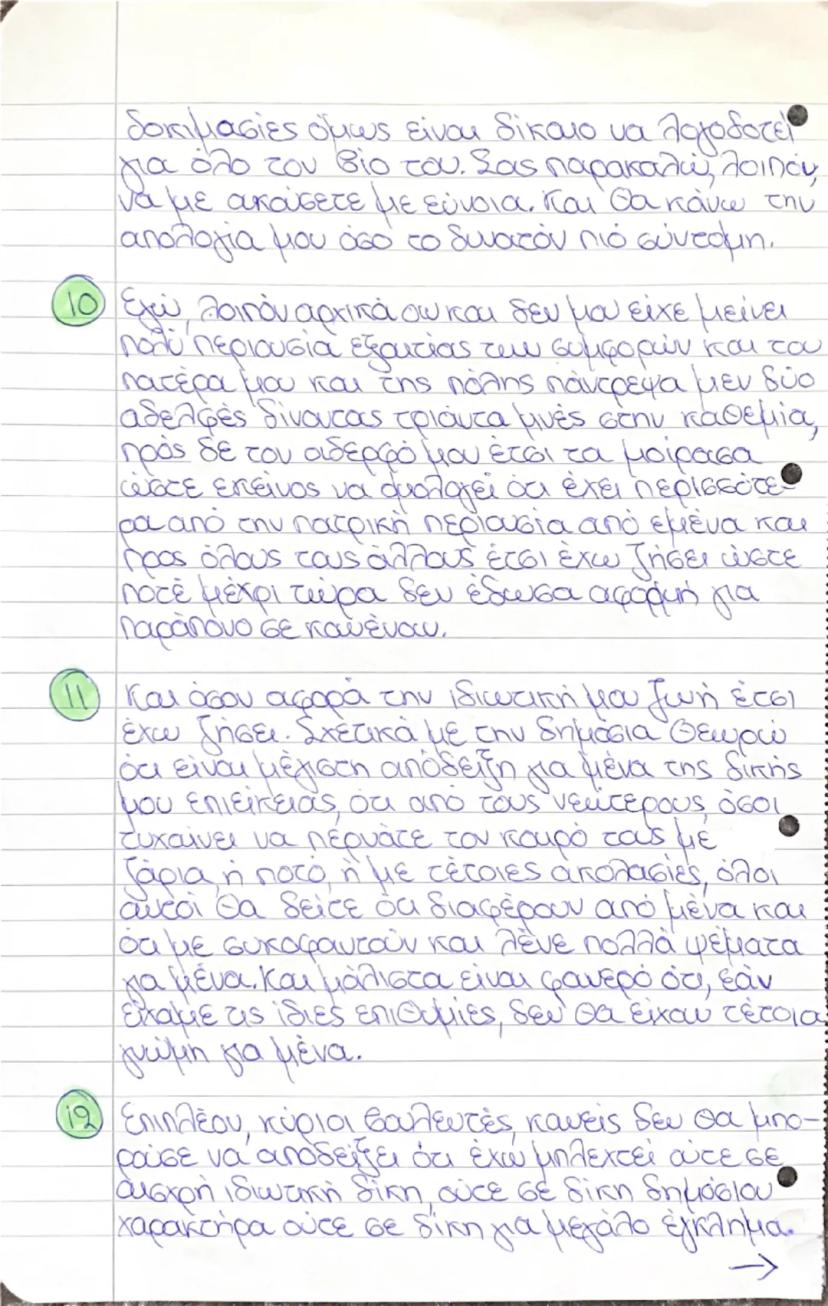 δοκιμασίες όμως είναι δίκαιο να λογοδοτεί
για όλο τον βίο του. Σας παρακαλώ, λοιπόν,
να με ακούσετε με εύνοια. Και θα κάνω την
απολογία μου όσο το δυνατόν πιό σύντομη.
10 Εγώ, λοιπόν αρχικά αν και δεν μου είχε μείνει
πολύ περιουσία εξαιτίας των συμφορών και του
πατέρα μου και της πόλης πάντρεψα μεν δύο
αδελφές δίνοντας τριάντα μνές στην καθεμία,
πρός δε τον αδερφό μου έτσι τα μοίρασα
ώστε εκείνος να ομολογεί ότι έχει περισσότε
ρα από την πατρική περιουσία από εμένα και
προς όλους τους άλλους έτσι έχω ζήσει ώστε
ποτέ μέχρι τώρα δεν έδωσα αφορμή για
παράπονο σε κανέναν.
11 Και όσον αφορά την ιδιωτική μου ζωή έτσι
έχω ζήσει. Σχετικά με την δημόσια θεωρώ
ότι είναι μέγιστη απόδειξη για μένα της δικής
μου επιείκειας, ότι από τους νεώτερους, όσοι
τυχαίνει να περνάτε τον καιρό τας με
ζάρια, ή ποτό, ή με τέτοιες ακολασίες, όλοι
αυτοί θα δείτε ότι διαφέρουν από μένα και
ότι με συκοφαντούν και λένε πολλά ψέματα
για μένα. Και μάλιστα είναι φανερό ότι, εάν
είχαμε τις ίδιες επιθυμίες, δεν θα είχαν τέτοια
γνώμη για μένα.
12 Επιπλέον, κύριοι βουλευτές, κανείς δεν θα μπο-
ρούσε να αποδείξει ότι έχω μπλεχτεί ούτε σε
αισχρή ιδιωτική δίκη, ούτε σε δίκη δημόσιου
χαρακτήρα ούτε σε δίκη για μεγάλο έγκλημα.
→